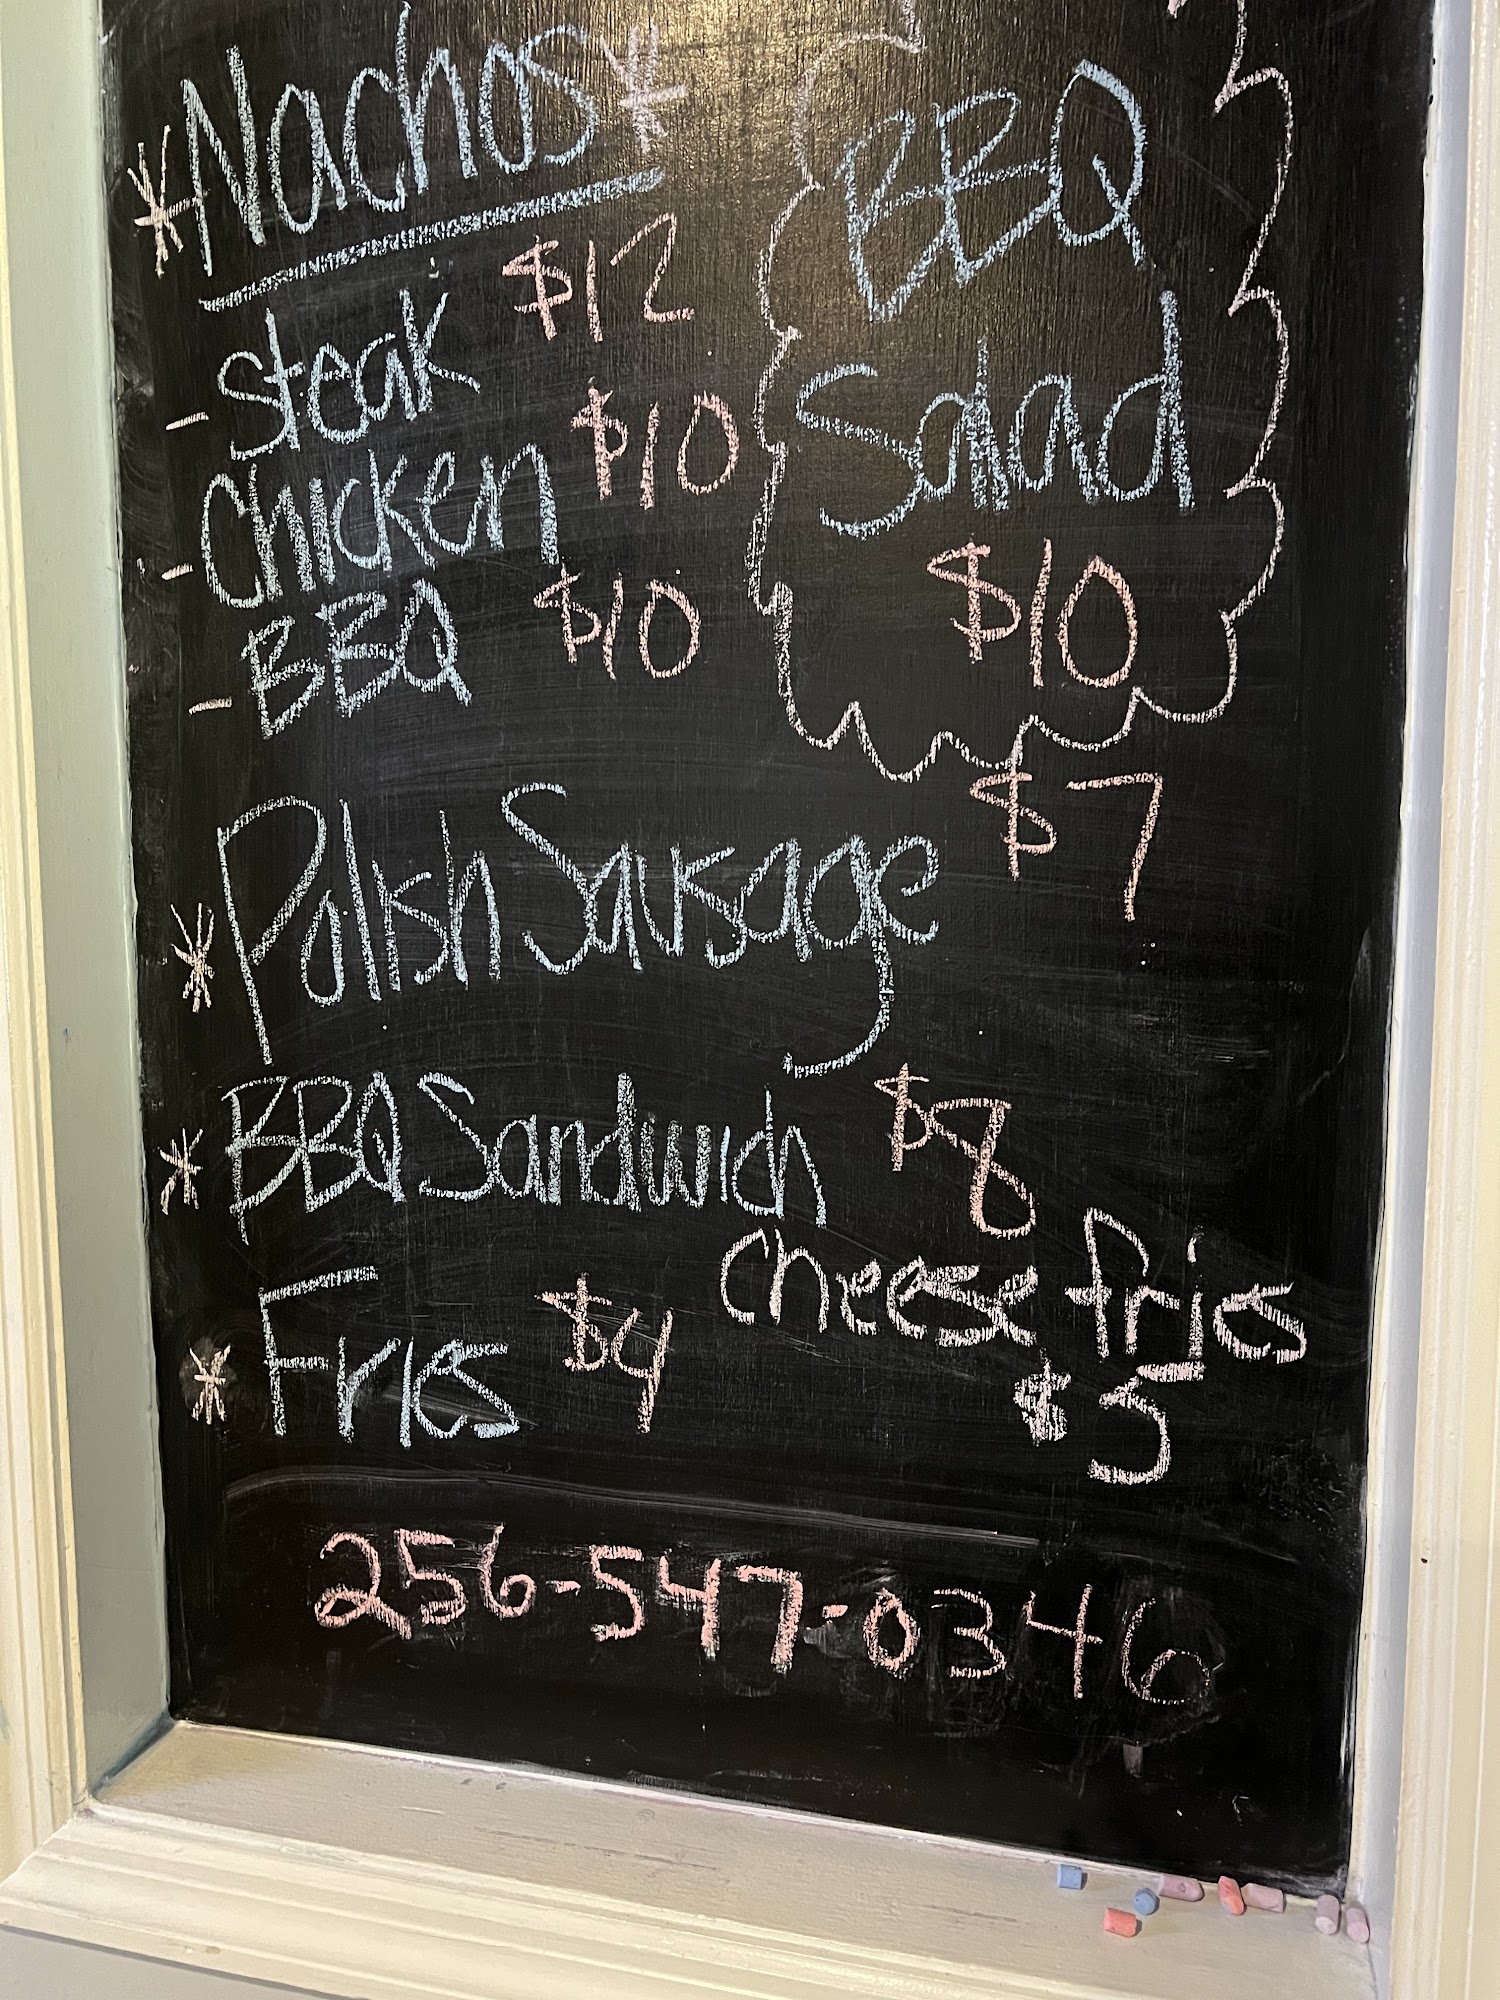 *Nachos*
- Steak $12
- Chicken $10
- BBQ $10
BBQ
Salad
$10
* Polish Sausage $7
* BBQ Sandwich $8
* Fries $4
Cheese fries
$5
256-547-0346